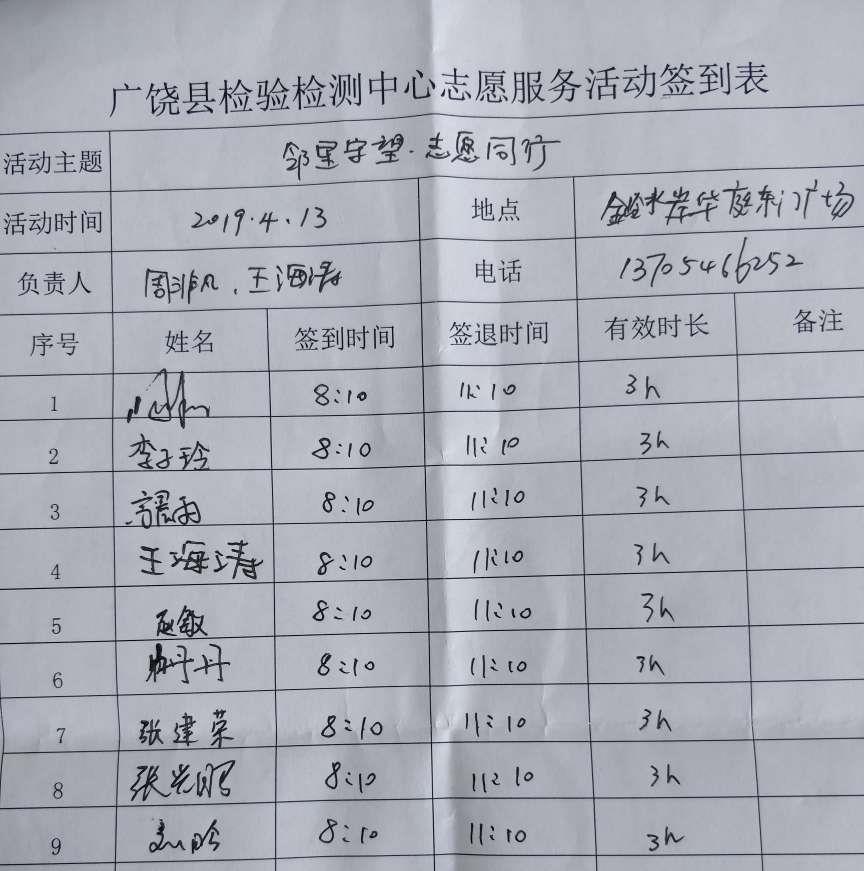 广饶县检验检测中心志愿服务活动签到表
活动主题 邻里守望·志愿同行
活动时间 2019.4.13 地点 水岸华庭东门广场
负责人 周非凡、王海涛 电话 13705466252
序号 姓名 签到时间 签退时间 有效时长 备注
1 8:10 11:10 3h
2 李子玲 8:10 11:10 3h
3 8:10 11:10 3h
4 王海涛 8:10 11:10 3h
5 赵敏 8:10 11:10 3h
6 丹丹 8:10 11:10 3h
7 张建荣 8:10 11:10 3h
8 张光明 8:10 11:10 3h
9 8:10 11:10 3h